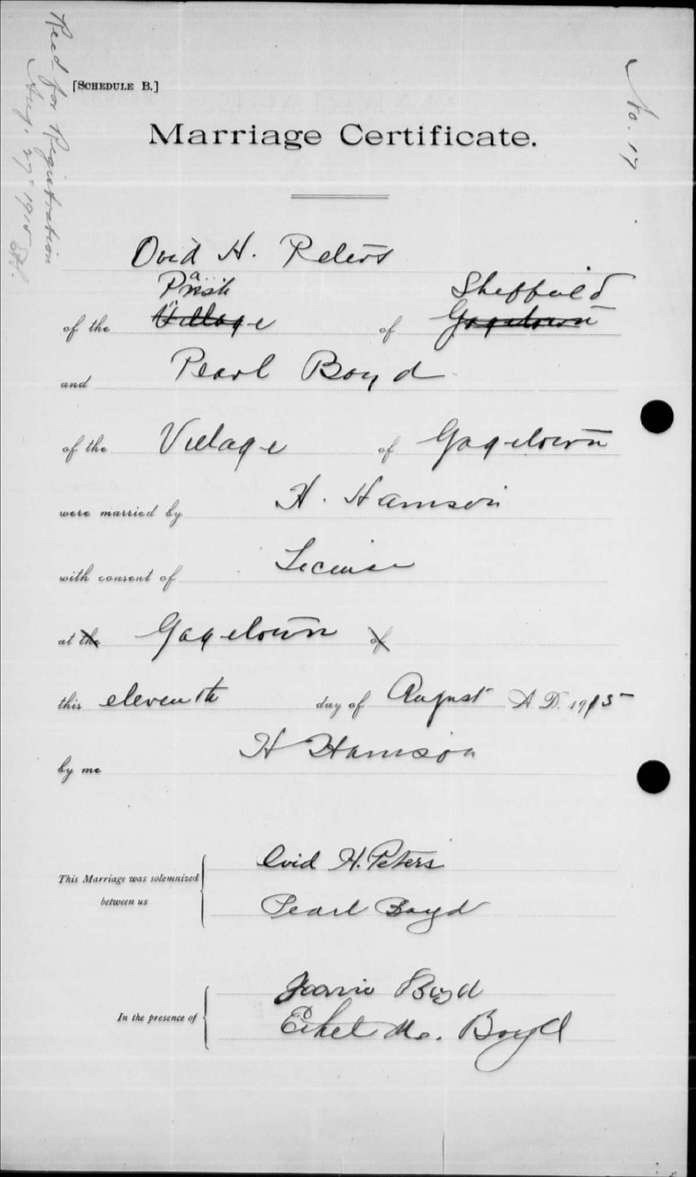 Recd for Registration
Aug. 27 1915
No. 17
[SCHEDULE B.]
Marriage Certificate.
Ovid H. Peters
Parish Sheffield
of the Village of Gagetown
and Pearl Boyd
of the Village of Gagetown
were married by H. Harrison
with consent of License
at the Gagetown of
this eleventh day of August A.D. 1915
by me H Harrison
This Marriage was solemnized
between us
Ovid H. Peters
Pearl Boyd
In the presence of
Jennie Boyd
Ethel M. Boyd